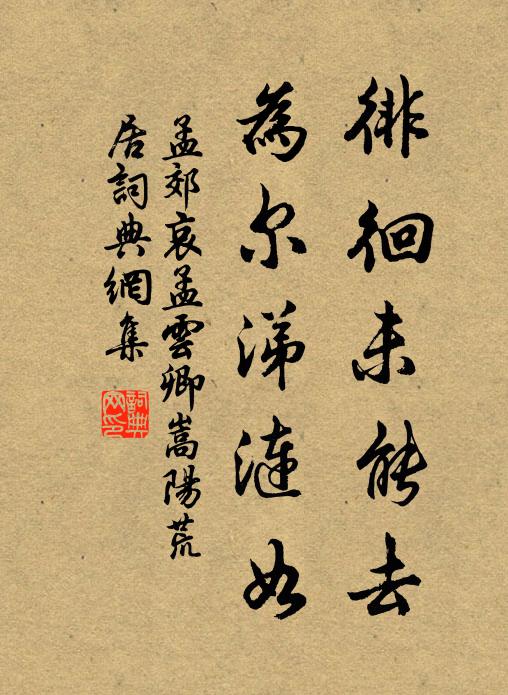 徘徊未能去
為尔涕漣如
孟郊哀孟雲卿嵩陽荒
居詞典網集
詞典網印